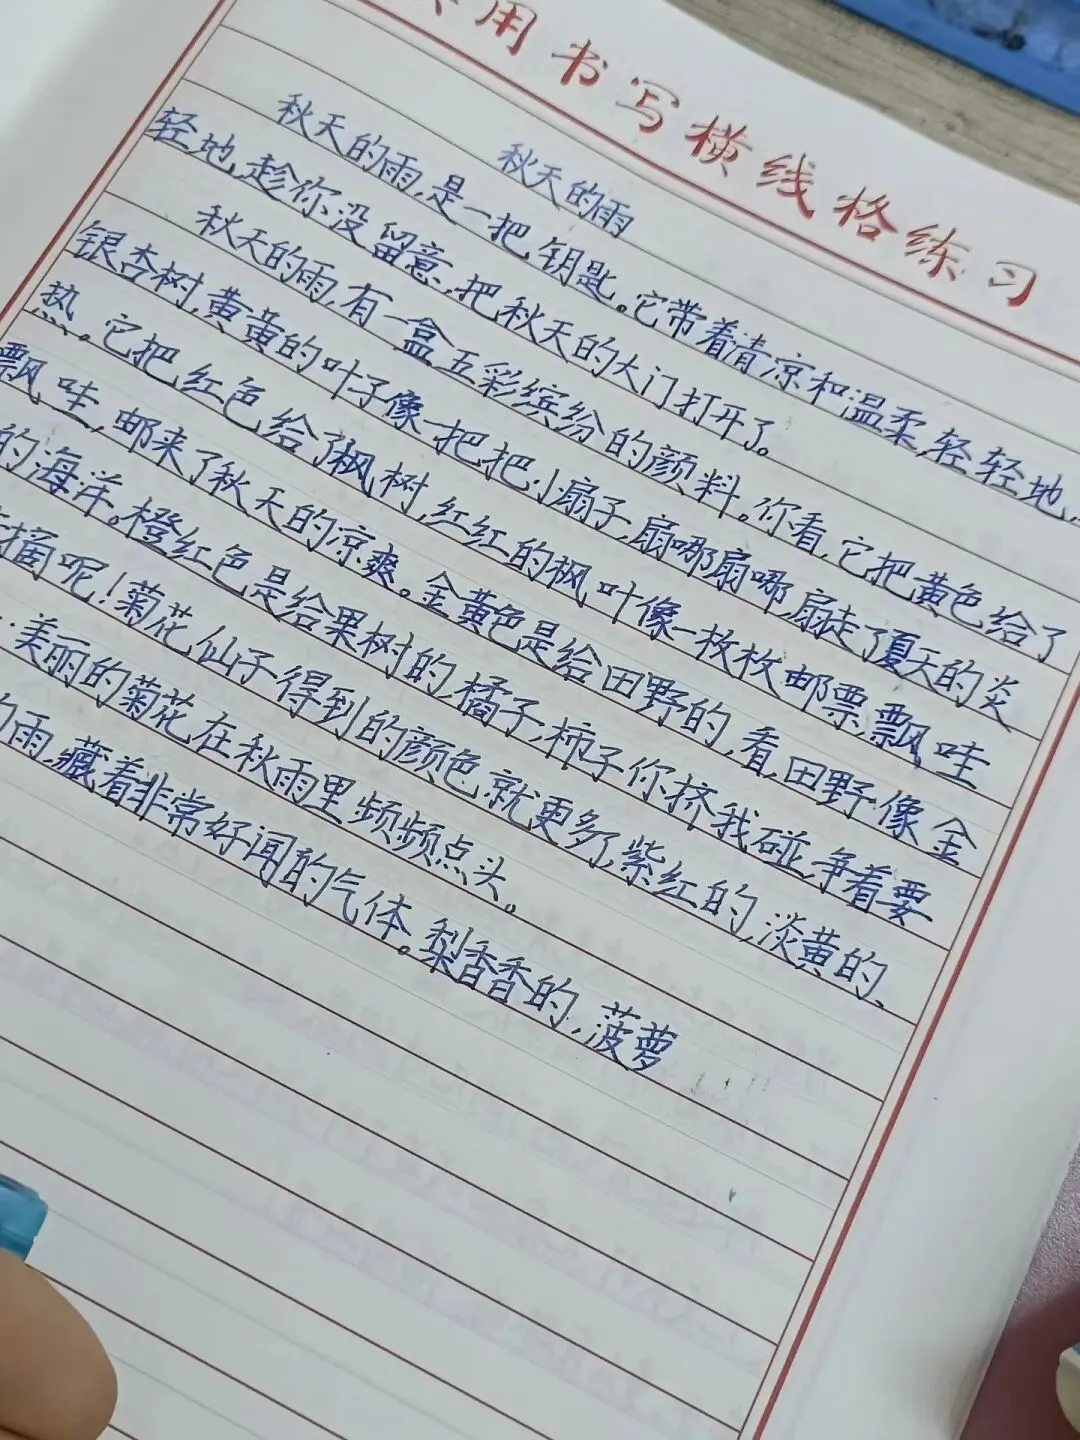 用书写横线格练习
秋天的雨
秋天的雨,是一把钥匙。它带着清凉和温柔,轻轻地,
轻地,趁你没留意,把秋天的大门打开了。
秋天的雨,有一盒五彩缤纷的颜料。你看,它把黄色给了
银杏树,黄黄的叶子像一把把小扇子,扇哪扇哪,扇走了夏天的炎
热。它把红色给了枫树,红红的枫叶像一枚枚邮票,飘哇
飘哇,邮来了秋天的凉爽。金黄色是给田野的,看,田野像金
的海洋。橙红色是给果树的,橘子,柿子你挤我碰,争着要
摘呢!菊花仙子得到的颜色就更多了,紫红的,淡黄的、
美丽的菊花在秋雨里频频点头。
的雨,藏着非常好闻的气体。梨香香的,菠萝